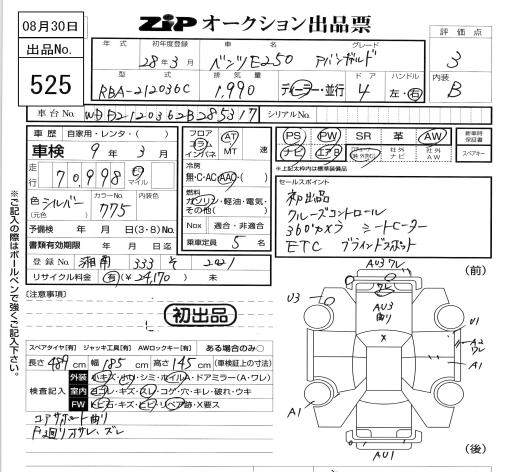 08月30日
出品No.
525
ZIP オークション出品票
年式 初年度登録 車名 グレード
28年3月 ベンツE250 アバンギャルド
評価点
3
型式 排気量 ドア ハンドル
RBA-212036C 1,990 ディーラー・並行 4 左・右
内装
B
車台No. WDD2120362B285317 シリアルNo.
車歴 自家用・レンタ・( )
車検 9年3月
走行 70,998 キロ マイル
色 シルバー (元色) カラーNo. 775
予備検 年 月 日(3・8) No.
書類有効期限 年 月 日迄
登録No. 湘南 333 そ 2221
リサイクル料金 有(¥24,170) 未
フロア コラム インパネ AT MT 速
無・C・AC・AAC・( )
燃料
ガソリン・軽油・電気・その他( )
Nox 適合・非適合
乗車定員 5 名
PS PW SR 革 AW
ナビ エアB 社外ナビ 社外AW
新車時保証書
スペアキー
*上記太枠内は標準装備
セールスポイント
初出品
クルーズコントロール
360°カメラ シートヒーター
ETC ブラインドスポット
※ご記入の際はボールペンで強くご記入下さい。
[注意事項]
初出品
スペアタイヤ[有] ジャッキ工具[有] AWロックキー[有] ある場合のみ○
長さ 489 cm 幅 185 cm 高さ 145 cm (車検証上の寸法)
検査記入
外装 小キズ・小凹・シミ・ホイルA・ドアミラー(A・ワレ)
内装 ヨゴレ・キズ・スレ・コゲ・穴・キレ・破れ・ウキ
FW トビ石・キズ・ヒビ・リペア跡・X要ス
コアサポート曲り
F廻りオサレ、ズレ
(前)
AU3 ワレ
ワレ
AU3
曲り
U3
U1
X
A2
ワレ
A1
A1
AU1
(後)